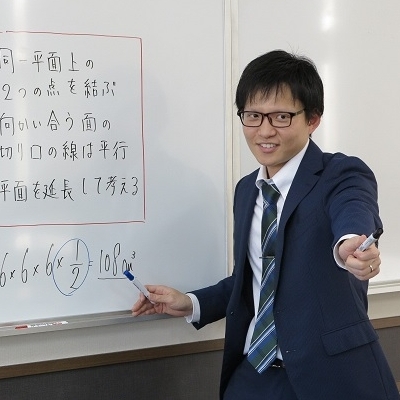 同一平面上の
2つの点を結ぶ
向かい合う面の
切り口の線は平行
平面を延長して考える
6×6×6×1/2=108cm³